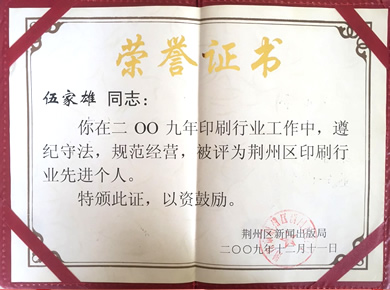 荣誉证书
伍家雄 同志：
你在二OO九年印刷行业工作中，遵
纪守法，规范经营，被评为荆州区印刷行
业先进个人。
特颁此证，以资鼓励。
荆州区新闻出版局
二〇〇九年十二月十一日